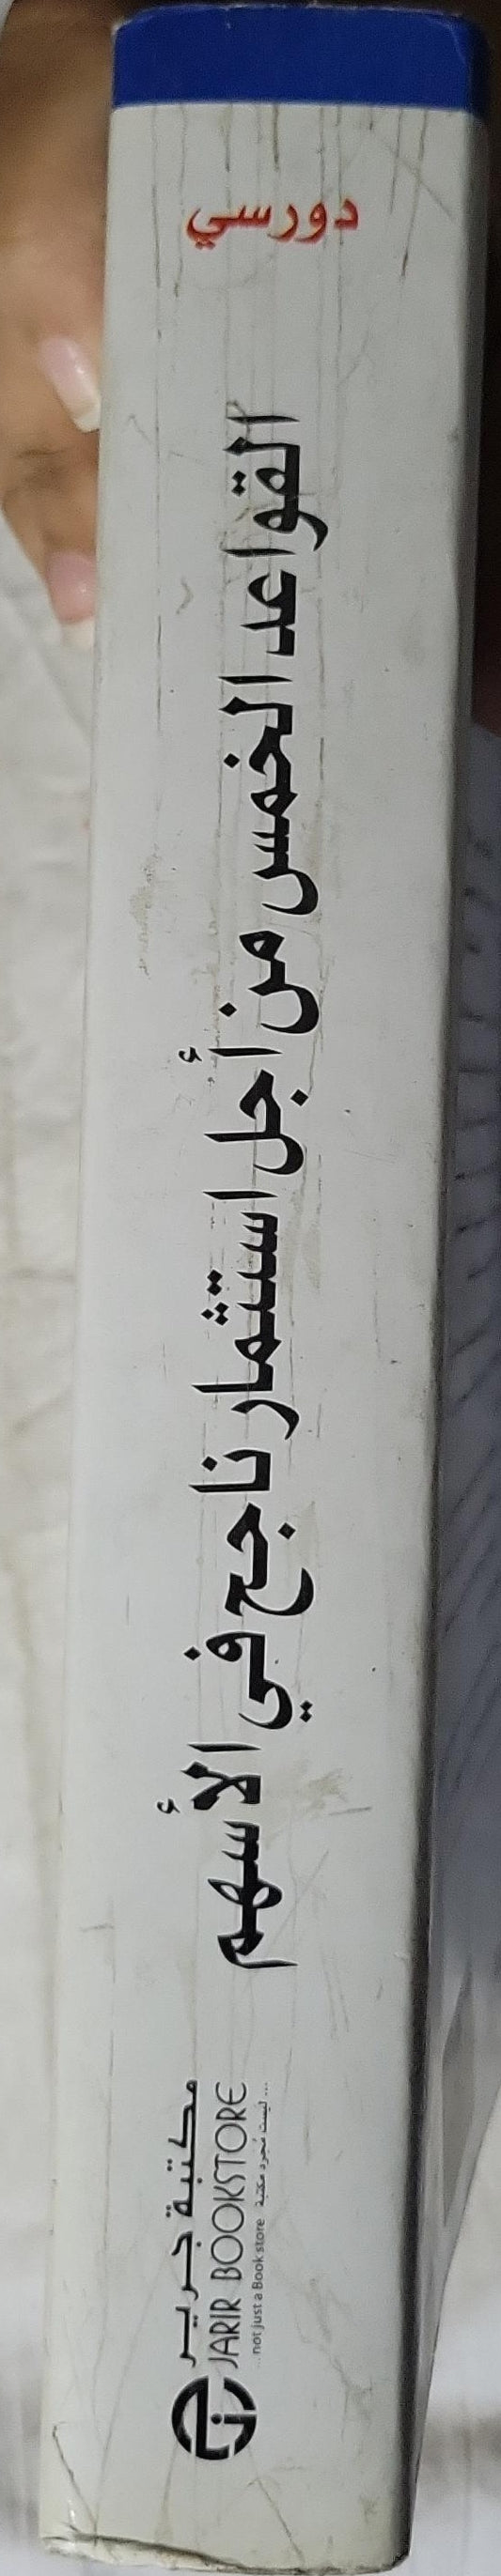 دورسي
القواعد الخمس من أجل استثمار ناجح في الأسهم
مكتبة جرير
JARIR BOOKSTORE
...not just a Bookstore ليست مجرد مكتبة...